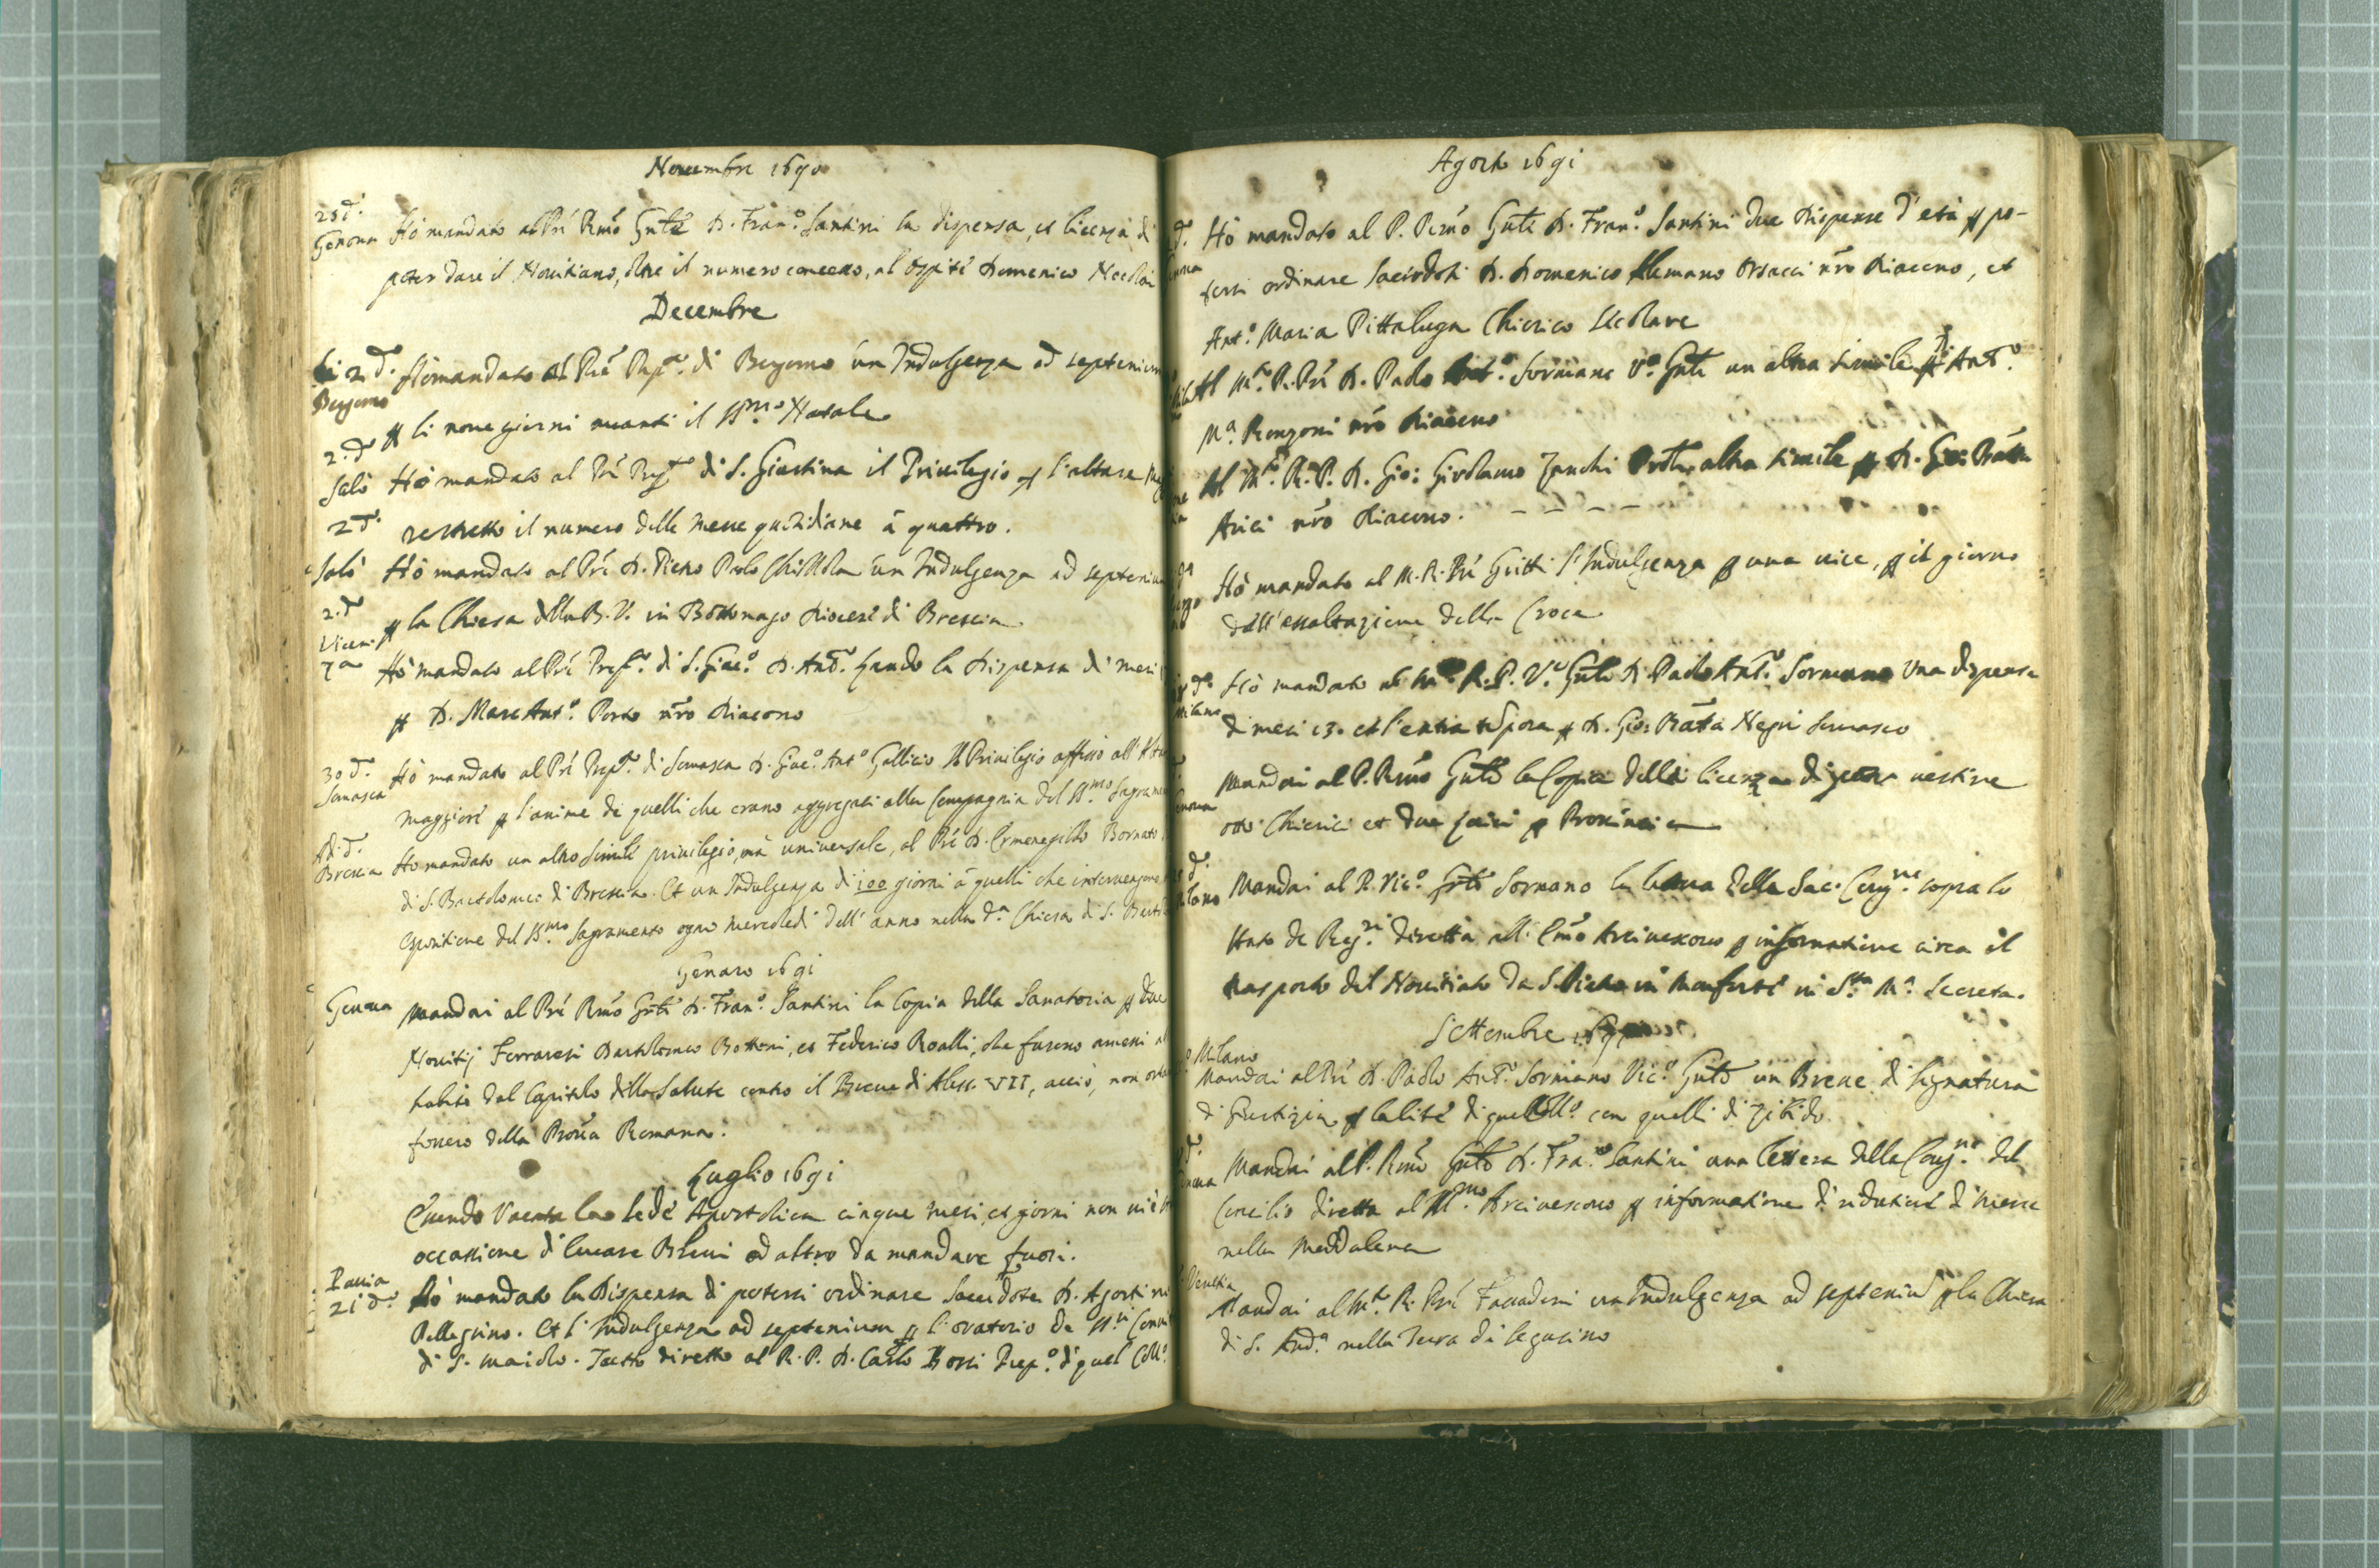 Nouembre 1690
25 d.
Genoua Hò mandato al Prē Rmō Gnle D. Fran.º Santini la dispensa, et licenza di
poter dare il Nouitiato, oltre il numero concesso, al ospite Domenico
Decembre
li 2 d. Hò mandato al Prē Prep.º di Bergamo un Indulgenza ad septenium
Bergamo
p li noue giorni auanti il SS.mo Natale
2. d
Salò Hò mandato al Prē Prep.to di S. Giustina il Priuilegio p l'altare
2 d. restretto il numero delle Messe quotidiane à quattro.
Salò Hò mandato al Prē D. Pietro Paolo un Indulgenza ad septenium
2. d
p la Chiesa della B. V. in Bottonago Diocesi di Brescia
Vicenza
Hò mandato al Prē Prep.º di S. Giac.º D. Ant.º Zando la Dispensa di mesi
p D. Marc Ant.º Porto nrō Diacono
30 d. Hò mandato al Prē Prep.º di Somasca D. Giac.º Ant.º Gallicio Il Priuilegio affisso all'
Somasca
Maggiore p l'anime di quelli che erano aggregati alla Compagnia del SS.mo
Ad. d.
Brescia Hò mandato un altro simile priuilegio, mà uniuersale, al Prē D. Ermenegildo Bornato
di S. Bartolomeo di Brescia. Et un Indulgenza di 100 giorni à quelli che interuengono
espositione del SS.mo Sagramento ogni Mercoledi dell'anno nella d.a Chiesa di S.
Genaro 1691
Genoua Mandai al Prē Rmō Gnle D. Fran.º Santini la Copia della Sanatoria p due
Nouitij Ferraresi Bartolomeo Bottoni, et Federico Roalli, che furono amessi
habito dal Capitolo della Salute contro il Breue di Aless. VII, acciò, non
fossero della Prouīa Romana.
Luglio 1691
Essendo Vacata la Sede Apostolica cinque mesi, et giorni non ui è
occasione di leuare Breui ad altro da mandare fuori.
Pauia
21 d. Hò mandato la Dispensa di potersi ordinare Sacerdote D. Agostino
Pellegrino. Et l'Indulgenza ad septenium p l'oratorio de SS.ri
di S. Maiolo. Tutto diretto al R. P. D. Carlo Bossi Prep.º di quel Coll.º
Agosto 1691
d. Hò mandato al P. Rmō Gnle D. Fran.º Santini due Dispense d'età p po-
tersi ordinare Sacerdoti D. Domenico Alemano nrō Diacono, et
Ant.º Maria Pittaluga Chierico Secolare
Al M.to R. Prē D. Paolo Ant.º Sormano V.º Gnle un altra simile p D. Ant.º
M.a Ronzoni nrō Diacono
Al M.to R. P. D. Gio: Girolamo Zanchi altra simile p D. Gio: Bātta
Arici nrō Diacono. - - - -
Hò mandato al M. R. Prē Gritti l'Indulgenza p una uice, p il giorno
dell'essaltazione della Croce
d.
Milano Hò mandato al M.to R. P. V.º Gnle D. Paolo Ant.º Sormano Una dispensa
di mesi 13. et l'extra tempora p D. Gio: Bātta Negri Somasco
Mandai al P. Rmō Gnle la Copia della licenza di poter uestire
otto Chierici et due Laici p Prouincia
d.
Milano Mandai al P. Vic.º Gnle Sormano la lettera della Sac. Cong.ne sopra lo
stato de Reg.ri diretta all'Emō Arciuescouo p informatione circa il
trasporto del Nouitiato da S. Pietro in Monforte in S.ta M.a Secreta.
Settembre 1691
Milano
Mandai al Prē D. Paolo Ant.º Sormano Vic.º Gnle un Breue di Signatura
di Giustizia p la lite di quel Coll.º con quelli di Zibido
d.
Genoua Mandai al P. Rmō Gnle D. Fra.co Santini una lettera della Cong.ne del
Concilio diretta al M.mo Arciuescouo p informatione di riduttione di Messe
nella Maddalena
Venetia
Mandai al M.to R. Prē un Indulgenza ad septenium p la Chiesa
di S. And.a nella Terra di Segusino